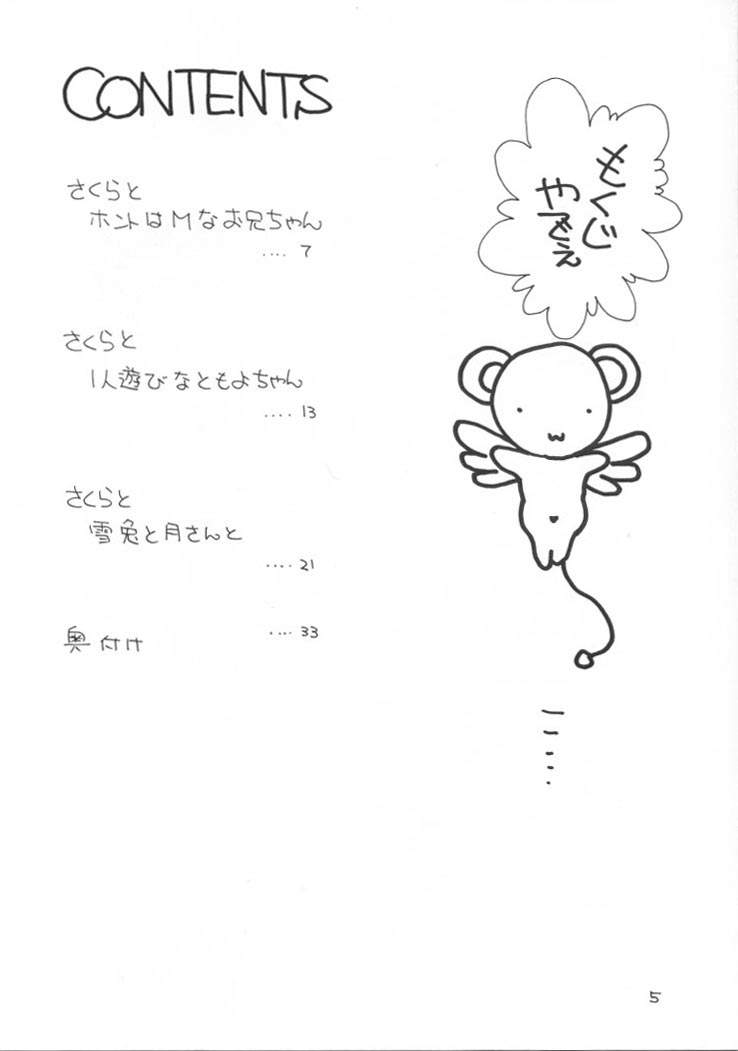 CONTENTS
さくらと
ホントはMなお兄ちゃん
.... 7
さくらと
1人遊びなともよちゃん
.... 13
さくらと
雪兔と月さんと
.... 21
奥付け
.... 33
もくじ
やでぇ
5